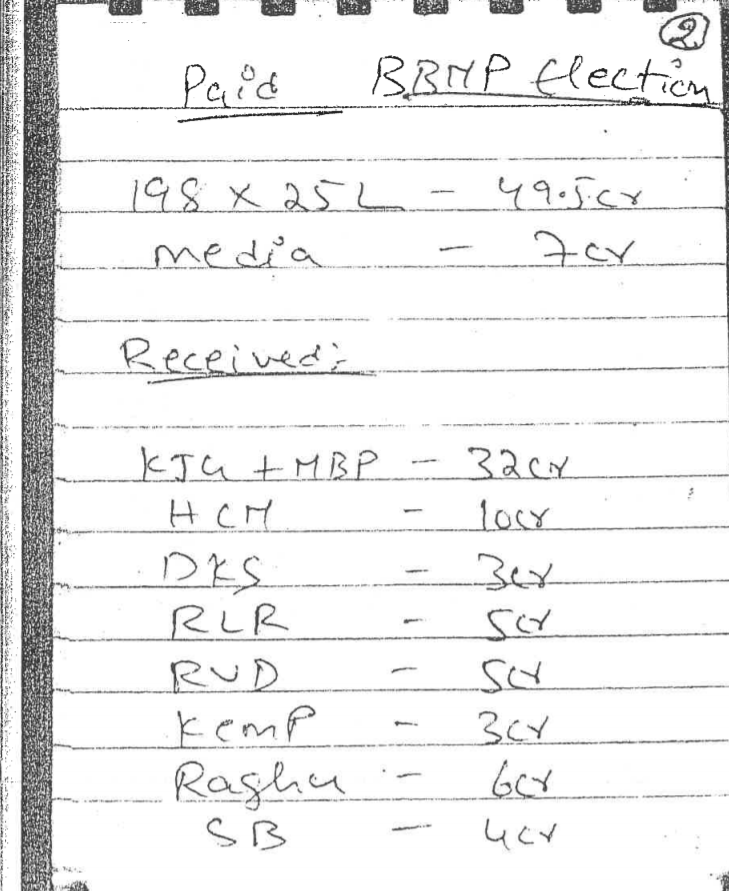 2
Paid BBMP Election
198 x 25L - 49.5cr
media - 7cr
Received:
KJG + MBP - 32cr
HCM - 10cr
DKS - 3cr
RLR - 5cr
RVD - 5cr
KemP - 3cr
Raghu - 6cr
SB - 4cr